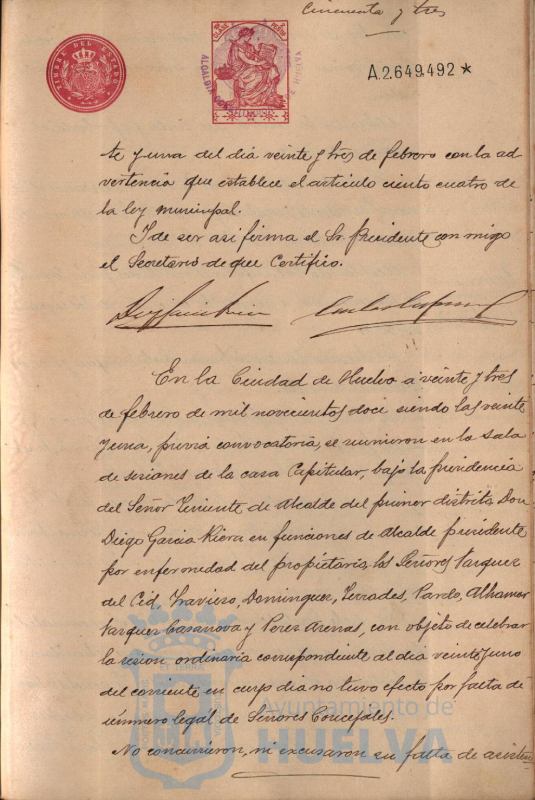 Cincuenta y tres
TIMBRE DEL ESTADO
A.2.649.492 *
te y una del dia veinte y tres de febrero con la ad-
vertencia que establece el articulo ciento cuatro de
la ley municipal.
Y de ser asi firma el Sr. Presidente conmigo
el Secretario de que Certifico.
En la Ciudad de Huelva á veinte y tres
de febrero de mil novecientos doce siendo las veinte
y una, previa convocatoria, se reunieron en la sala
de sesiones de la casa Capitular, bajo la presidencia
del Señor Teniente de Alcalde del primer distrito Don
Diego Garcia Riera en funciones de Alcalde presidente
por enfermedad del propietario, los Señores Vazquez
del Cid, Travieso, Dominguez, Terrades, Pardo, Alhamar
Vazquez Casanova y Perez Arenas, con objeto de celebrar
la sesion ordinaria correspondiente al dia veinte y uno
del corriente en cuyo dia no tuvo efecto por falta de
número legal de Señores Concejales.
No concurrieron, ni excusaron su falta de asisten
Ayuntamiento de
HUELVA